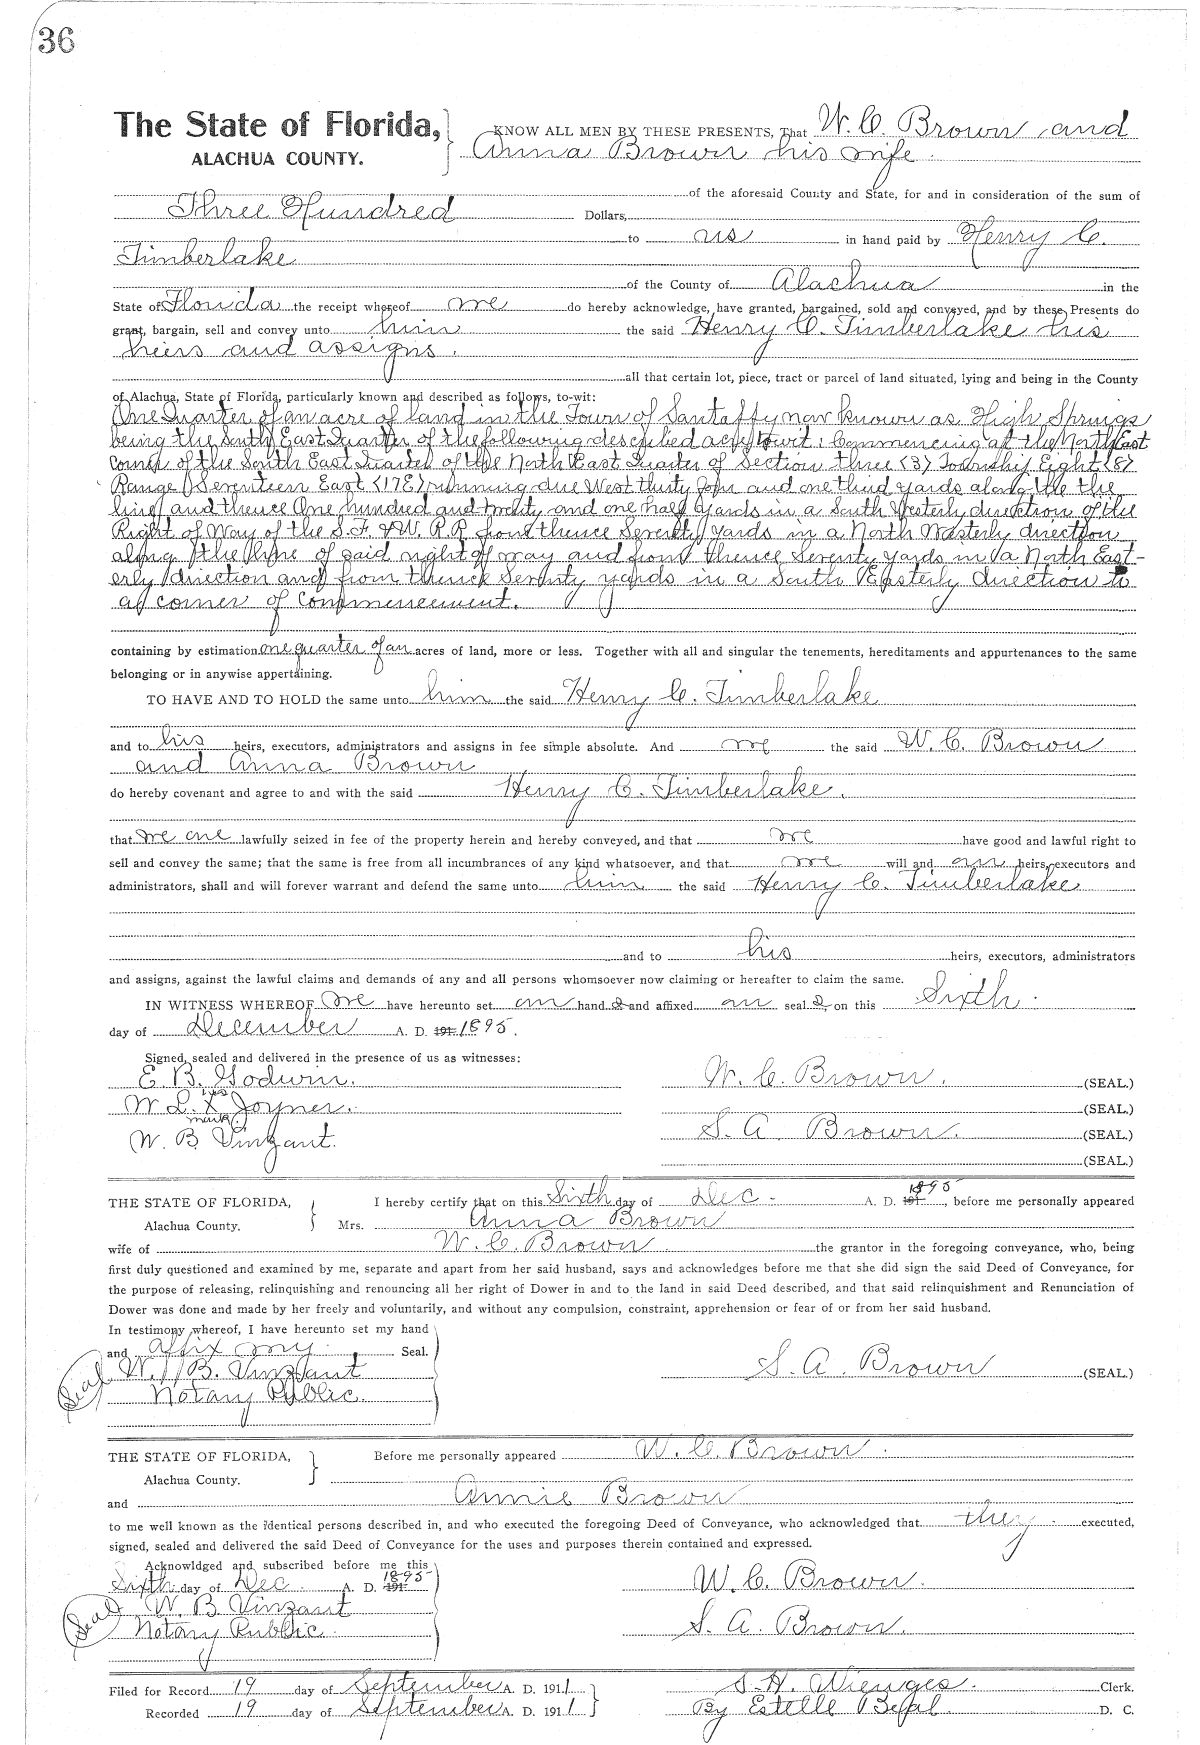 36
The State of Florida, KNOW ALL MEN BY THESE PRESENTS, That W. C. Brown and
ALACHUA COUNTY. Anna Brown his wife.
of the aforesaid County and State, for and in consideration of the sum of
Three Hundred Dollars,
to us in hand paid by Henry C.
Timberlake
of the County of Alachua in the
State of Florida the receipt whereof we do hereby acknowledge, have granted, bargained, sold and conveyed, and by these Presents do
grant, bargain, sell and convey unto him the said Henry C. Timberlake his
heirs and assigns.
all that certain lot, piece, tract or parcel of land situated, lying and being in the County
of Alachua, State of Florida, particularly known and described as follows, to-wit:
One Quarter of an acre of land in the Town of Santaffy now known as High Springs
being the South East Quarter of the following described acre, towit: Commencing at the North East
Corner of the South East Quarter of the North East Quarter of Section three (3) Township Eight (8)
Range Seventeen East (17E) running due West thirty four and one third yards along the the
line and thence One hundred and twenty and one half yards in a South Westerly direction of the
Right of Way of the S.F. & W. R.R. from thence Seventy yards in a North Westerly direction
along the lyne of said right of way and from thence Seventy yards in a North East-
erly direction and from thence Seventy yards in a South Easterly direction to
a corner of commencement.
containing by estimation one quarter of an acres of land, more or less. Together with all and singular the tenements, hereditaments and appurtenances to the same
belonging or in anywise appertaining.
TO HAVE AND TO HOLD the same unto him the said Henry C. Timberlake
and to his heirs, executors, administrators and assigns in fee simple absolute. And we the said W. C. Brown
and Anna Brown
do hereby covenant and agree to and with the said Henry C. Timberlake.
that we are lawfully seized in fee of the property herein and hereby conveyed, and that we have good and lawful right to
sell and convey the same; that the same is free from all incumbrances of any kind whatsoever, and that we will and our heirs, executors and
administrators, shall and will forever warrant and defend the same unto him the said Henry C. Timberlake
and to his heirs, executors, administrators
and assigns, against the lawful claims and demands of any and all persons whomsoever now claiming or hereafter to claim the same.
IN WITNESS WHEREOF We have hereunto set our hand s and affixed our seal s on this Sixth
day of December A. D. 191 1895.
Signed, sealed and delivered in the presence of us as witnesses:
E. B. Godwin. W. C. Brown. (SEAL.)
his
W. L. X Joyner. (SEAL.)
mark
W. B. Vinzant. S. A. Brown. (SEAL.)
(SEAL.)
THE STATE OF FLORIDA, I hereby certify that on this Sixth day of Dec A. D. 191 1895, before me personally appeared
Alachua County. Mrs. Anna Brown
wife of W. C. Brown the grantor in the foregoing conveyance, who, being
first duly questioned and examined by me, separate and apart from her said husband, says and acknowledges before me that she did sign the said Deed of Conveyance, for
the purpose of releasing, relinquishing and renouncing all her right of Dower in and to the land in said Deed described, and that said relinquishment and Renunciation of
Dower was done and made by her freely and voluntarily, and without any compulsion, constraint, apprehension or fear of or from her said husband.
In testimony whereof, I have hereunto set my hand
and affix my Seal.
Seal W. B. Vinzant S. A. Brown (SEAL.)
Notary Public.
THE STATE OF FLORIDA, Before me personally appeared W. C. Brown.
Alachua County.
and Annie Brown
to me well known as the identical persons described in, and who executed the foregoing Deed of Conveyance, who acknowledged that they executed,
signed, sealed and delivered the said Deed of Conveyance for the uses and purposes therein contained and expressed.
Acknowldged and subscribed before me this
Sixth day of Dec. A. D. 191 1895 W. C. Brown.
Seal W. B. Vinzant S. A. Brown.
Notary Public.
Filed for Record 19 day of September A. D. 1911 S. H. Wienges. Clerk.
Recorded 19 day of September A. D. 1911 By Estelle D. C.